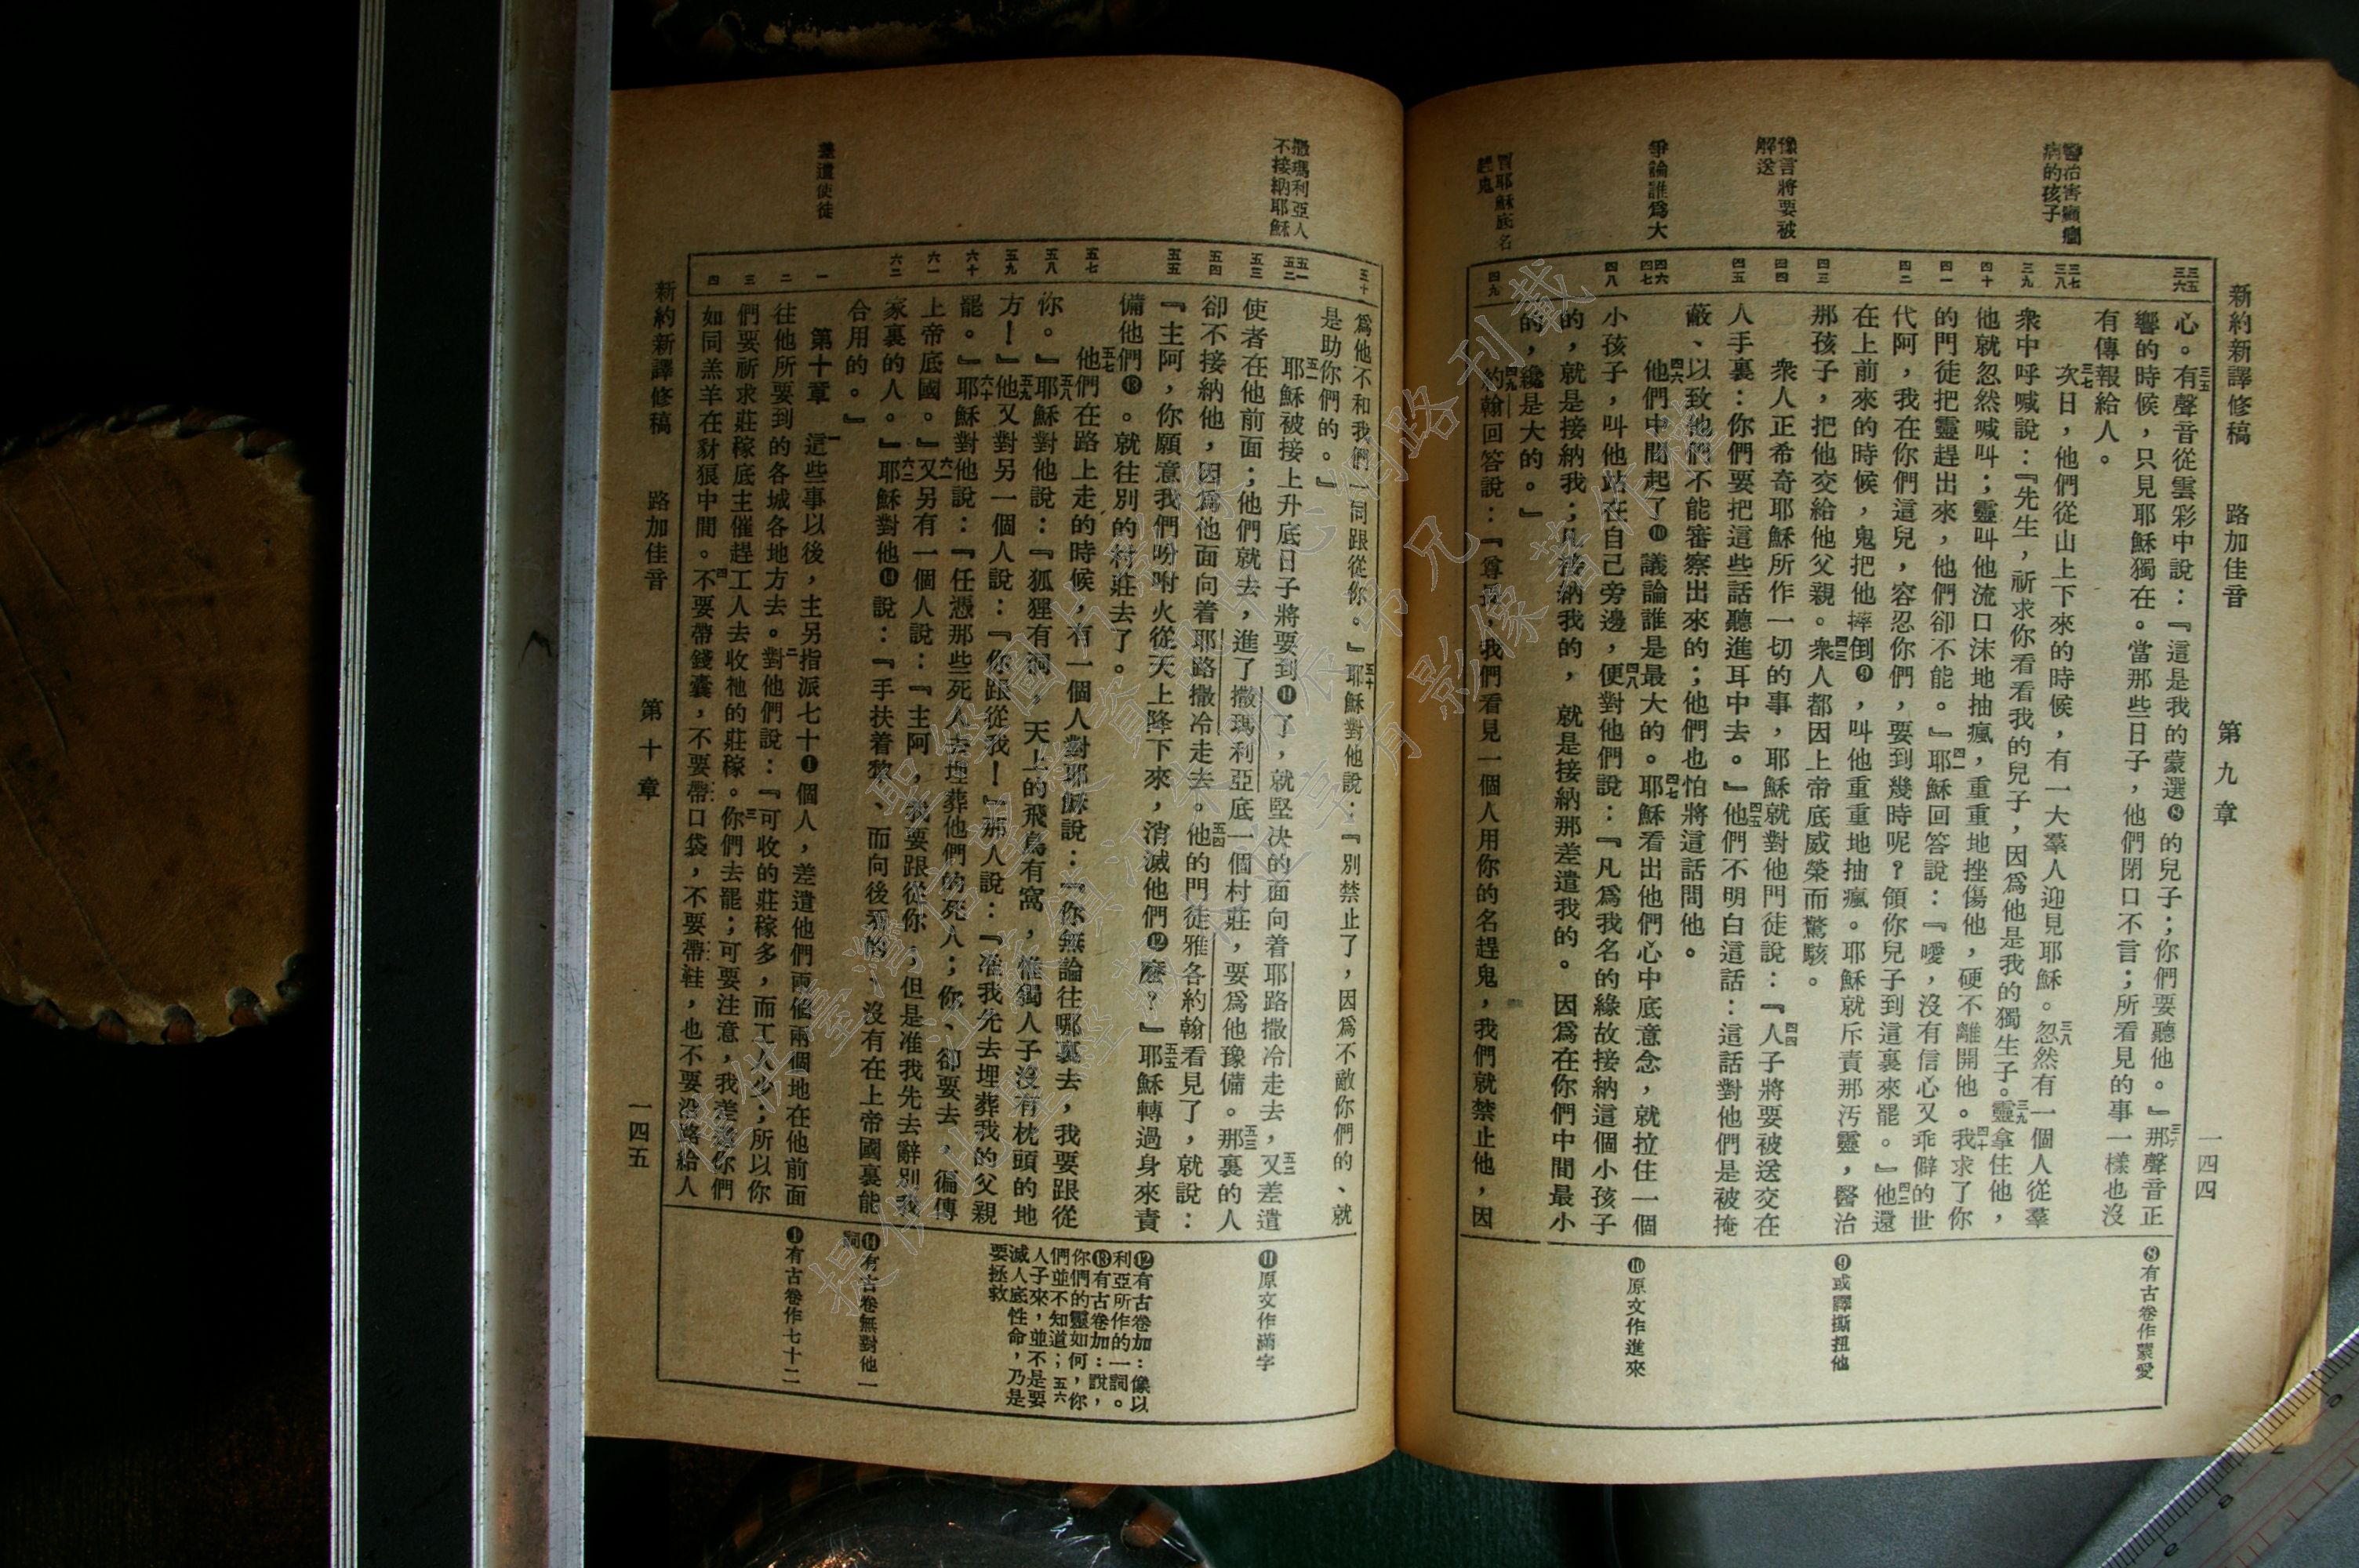 新約新譯修稿 路加佳音 第九章 一四四
醫治害癲癇
病的孩子
豫言將要被
解送
爭論誰爲大
冒耶穌底名
趕鬼
三五
三六
三七
三八
三九
四十
四一
四二
四三
四四
四五
四六
四七
四八
四九
心。三五有聲音從雲彩中說：『這是我的蒙選❽的兒子；你們要聽他。』三六那聲音正
響的時候，只見耶穌獨在。當那些日子，他們閉口不言；所看見的事一樣也沒
有傳報給人。
三七次日，他們從山上下來的時候，有一大羣人迎見耶穌。三八忽然有一個人從羣
衆中呼喊說：『先生，祈求你看看我的兒子，因爲他是我的獨生子。三九靈拿住他，
他就忽然喊叫；靈叫他流口沫地抽瘋，重重地挫傷他，硬不離開他。四十我求了你
的門徒把靈趕出來，他們卻不能。』四一耶穌回答說：『噯，沒有信心又乖僻的世
代阿，我在你們這兒，容忍你們，要到幾時呢？領你兒子到這裏來罷。』四二他還
在上前來的時候，鬼把他摔倒❾，叫他重重地抽瘋。耶穌就斥責那汚靈，醫治
那孩子，把他交給他父親。四三衆人都因上帝底威榮而驚駭。
衆人正希奇耶穌所作一切的事，耶穌就對他門徒說：四四『人子將要被送交在
人手裏：你們要把這些話聽進耳中去。』四五他們不明白這話：這話對他們是被掩
蔽、以致他們不能審察出來的；他們也怕將這話問他。
四六他們中間起了❿議論誰是最大的。四七耶穌看出他們心中底意念，就拉住一個
小孩子，叫他站在自己旁邊，四八便對他們說：『凡爲我名的緣故接納這個小孩子
的，就是接納我；凡接納我的，就是接納那差遣我的。因爲在你們中間最小
的，纔是大的。』
四九約翰回答說：『尊長，我們看見一個人用你的名趕鬼，我們就禁止他，因
❽有古卷作蒙愛
❾或譯撕扭他
❿原文作進來
撒瑪利亞人
不接納耶穌
差遣使徒
五十
五一
五二
五三
五四
五五
五七
五八
五九
六十
六一
六二
一
二
三
四
爲他不和我們一同跟從你。』五十耶穌對他說：『別禁止了，因爲不敵你們的、就
是助你們的。』
五一耶穌被接上升底日子將要到⓫了，就堅決的面向着耶路撒冷走去，五二又差遣
使者在他前面；他們就去，進了撒瑪利亞底一個村莊，要爲他豫備。五三那裏的人
卻不接納他，因爲他面向着耶路撒冷走去。五四他的門徒雅各約翰看見了，就說：
『主阿，你願意我們吩咐火從天上降下來，消滅他們⓬麽？』五五耶穌轉過身來責
備他們⓭。就往別的村莊去了。
五七他們在路上走的時候，有一個人對耶穌說：『你無論往哪裏去，我要跟從
你。』五八耶穌對他說：『狐狸有洞，天上的飛鳥有窩，惟獨人子沒有枕頭的地
方！』五九他又對另一個人說：『你跟從我！』那人說：『准我先去埋葬我的父親
罷。』六十耶穌對他說：『任憑那些死人去埋葬他們的死人；你、卻要去，徧傳
上帝底國。』六一又另有一個人說：『主阿，我要跟從你，但是准我先去辭別我
家裏的人。』六二耶穌對他⓮說：『手扶着犂、而向後看的、沒有在上帝國裏能
合用的。』
第十章 一這些事以後，主另指派七十❶個人，差遣他們兩個兩個地在他前面
往他所要到的各城各地方去。二對他們說：『可收的莊稼多，而工人少；所以你
們要祈求莊稼底主催趕工人去收祂的莊稼。三你們去罷；可要注意，我差遣你們
如同羔羊在豺狼中間。四不要帶錢囊，不要帶口袋，不要帶鞋，也不要沿路給人
⓫原文作滿字
⓬有古卷加：像以
利亞所作的一詞。
⓭有古卷加：說，
你們的靈如何，你
們並不知道；五六
人子來，並不是要
滅人底性命，乃是
要拯救
⓮有古卷無對他一
詞
❶有古卷作七十二
新約新譯修稿 路加佳音 第十章 一四五